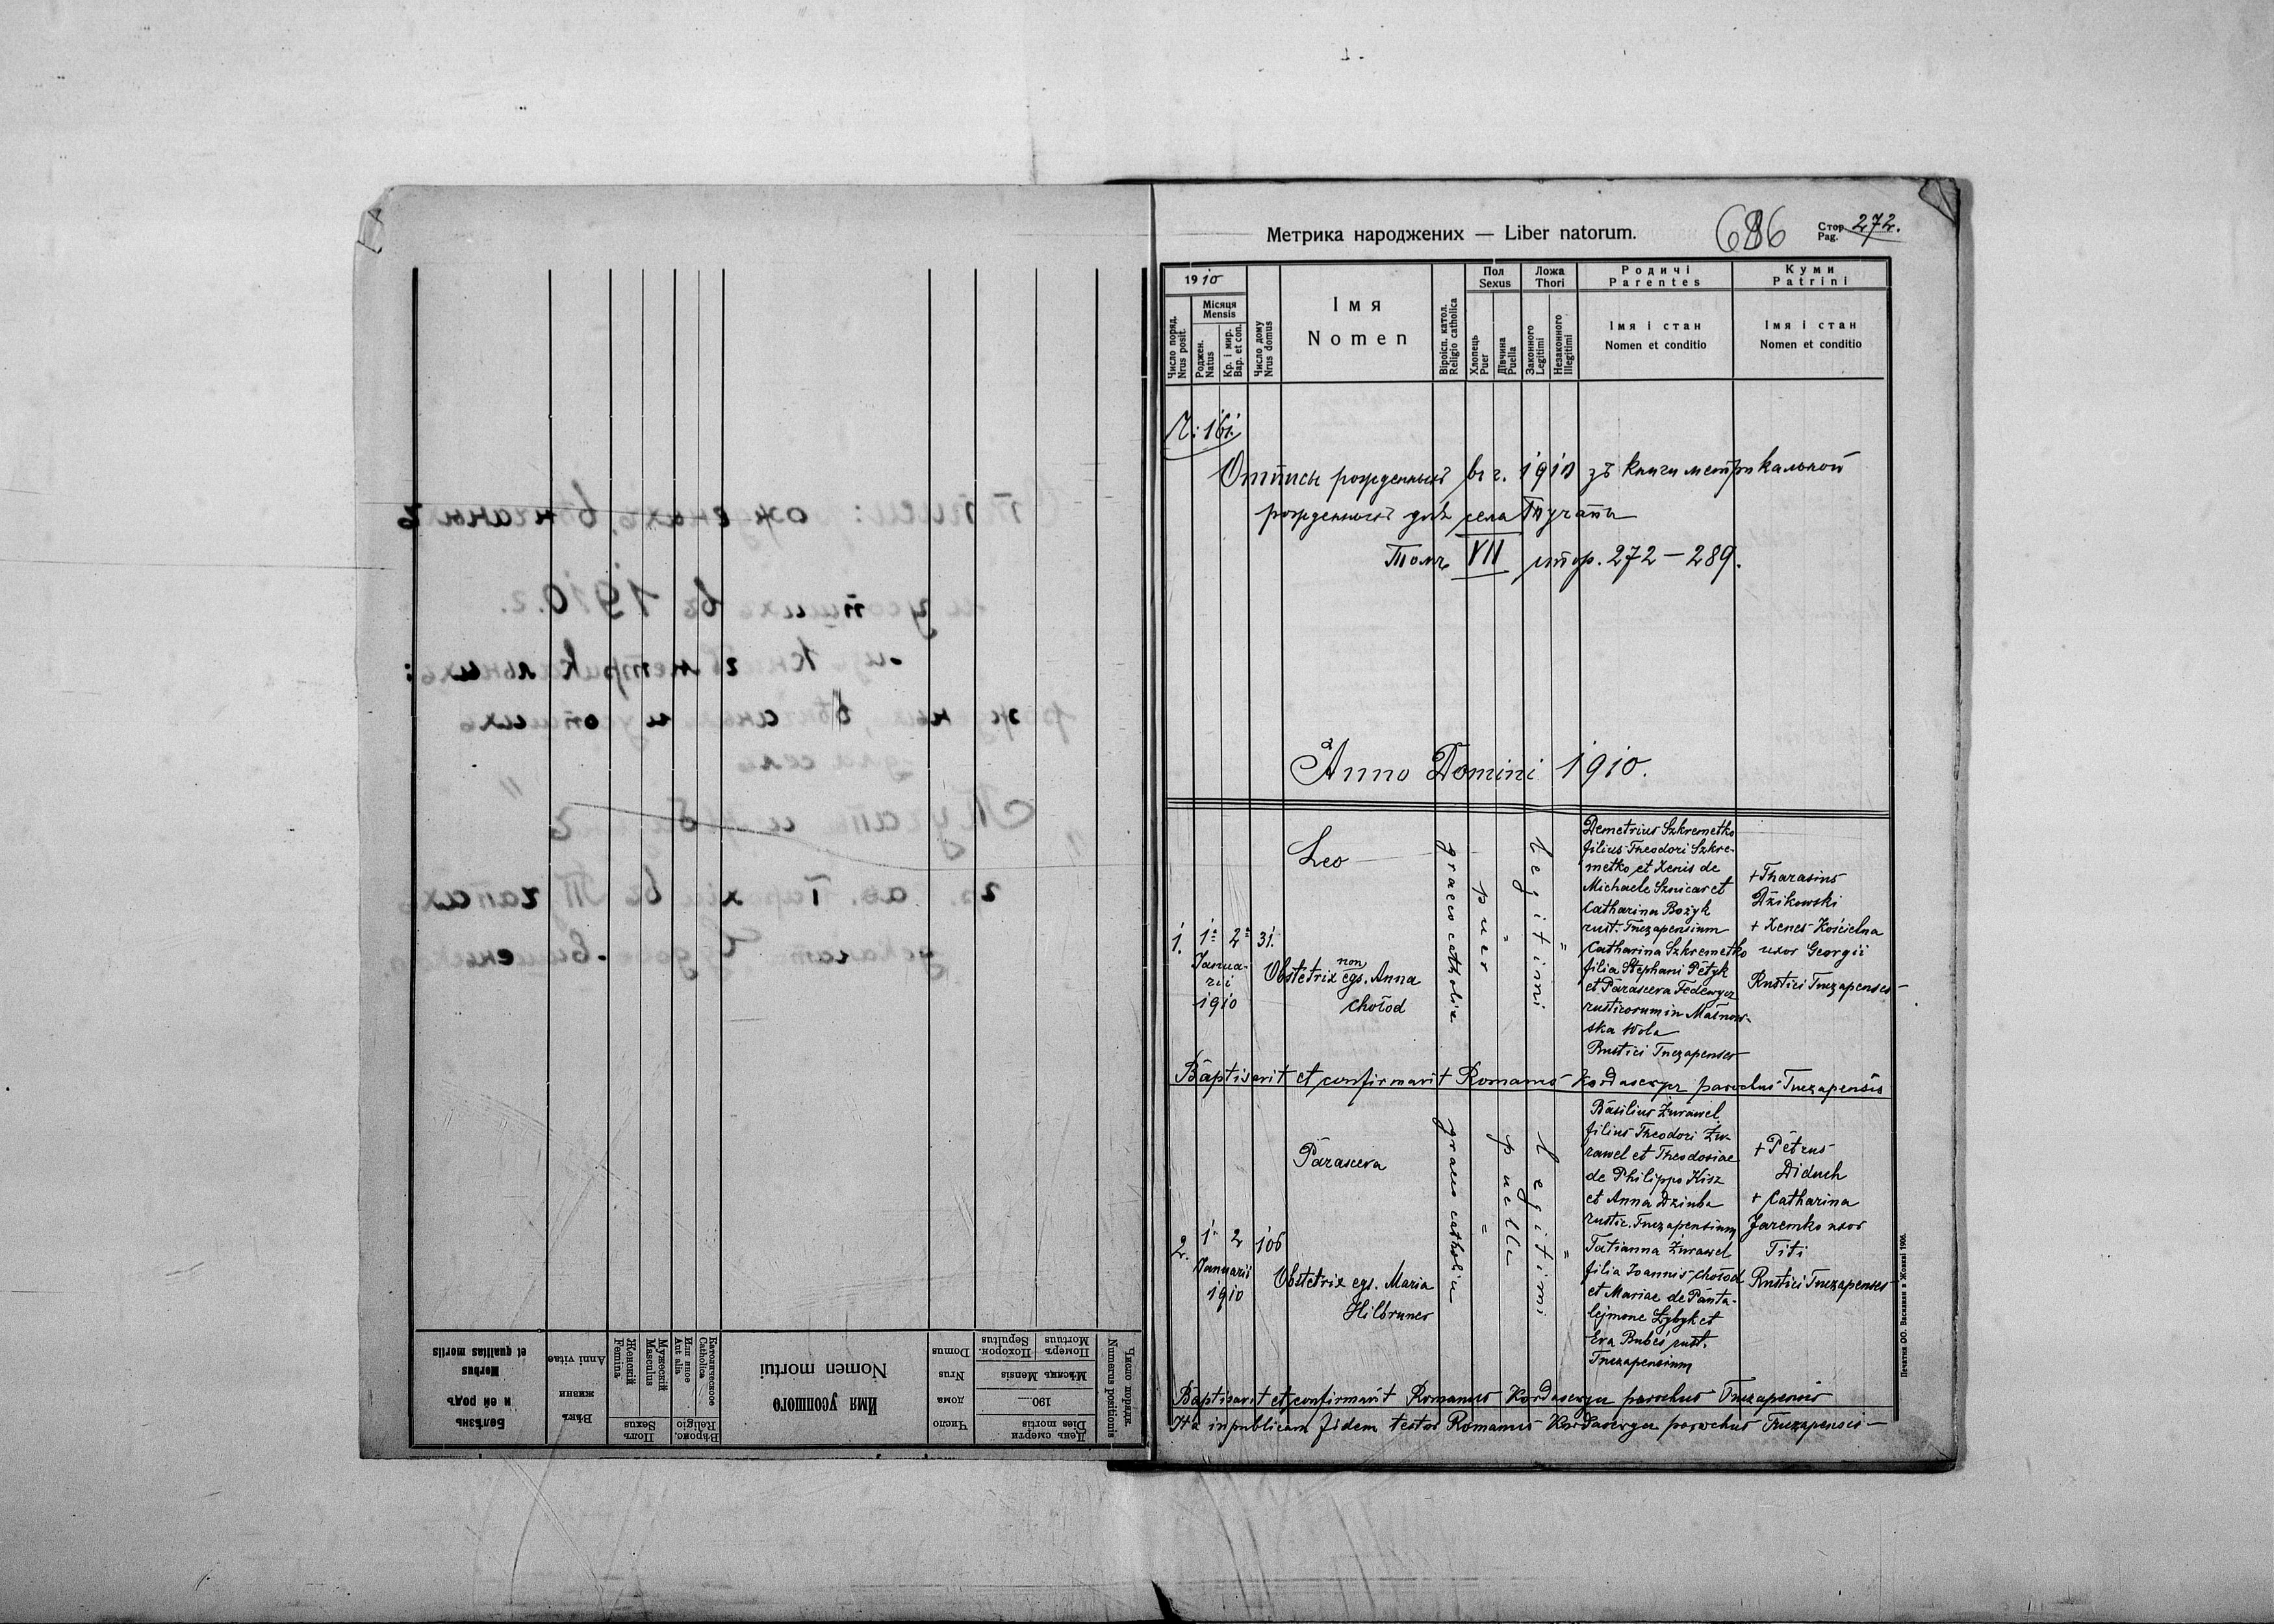 Метрика народжених — Liber natorum.
686
Стор. 272.
Pag.
1910
Число поряд.
Nrus posit.
Місяця
Mensis
Роджен.
Natus
Кр. і мир.
Bap. et con.
Число дому
Nrus domus
Імя
Nomen
Віроісп. катол.
Religio catholica
Пол
Sexus
Хлопець
Puer
Дівчина
Puella
Ложа
Thori
Законного
Legitimi
Незаконного
Illegitimi
Родичі
Parentes
Імя і стан
Nomen et conditio
Куми
Patrini
Імя і стан
Nomen et conditio
Ч: 161
Отписъ рожденныхъ въ г. 1910 зъ книги метрикальной
рожденныхъ для села Тучапы
Томъ VII стор. 272 — 289.
Anno Domini 1910.
1.
1ª 2ª
Janua-
rii
1910
31.
Leo
Obstetrix non egs. Anna
Chołod
graeco catholica
puer
"
Legitimi
"
Demetrius Szkremetko
filius Theodori Szkre-
metko et Xenis de
Michaele Sznicar et
Catharina Bożyk
rust. Tuczapensium
Catharina Szkremetko
filia Stephani Petyk
et Parasceva Fedewycz
rusticorum in Małnow-
ska Wola
Rustici Tuczapenses
+ Tharasius
Dżikowski
+ Xenes Kościelna
uxor Georgii
Rustici Tuczapenses
Baptisavit et confirmavit Romanus Kordasewycz parochus Tuczapensis
2.
1 2
Januarii
1910
106
Parasceva
Obstetrix egs. Maria
Hilbruner
graeco catholica
"
puella
Legitimi
"
Basilius Żurawel
filius Theodori Żu-
rawel et Theodosiae
de Philippo Kisz
et Anna Dziuba
rustic. Tuczapensium
Tatianna Żurawel
filia Joannis Chołod
et Mariae de Panta-
lejmone Zybyk et
Eva Bubeś rust.
Tuczapensium
+ Petrus
Diduch
+ Catharina
Jaremko uxor
Titi
Rustici Tuczapenses
Baptisavit et confirmavit Romanus Kordasewycz parochus Tuczapensis
Ita in publicam fidem testor Romanus Kordasewycz parochus Tuczapensis
Печатня ОО. Василіян в Жовкві 1906.
Число порядк.
Numerus positionis
День смерти
Dies mortis
190.....
Мѣсяць Mensis
Померъ
Mortuus
Похорон.
Sepultus
Число
дома
Nrus
Domus
Имя усопшого
Nomen mortui
Вѣроис.
Religio
Католическое
Catholica
Или иное
Aut alia
Полъ
Sexus
Мужескій
Masculus
Женскій
Femina
Вѣкъ
жизни
Anni vitae
Болѣзнь
и ей родъ
Morbus
et qualitas mortis